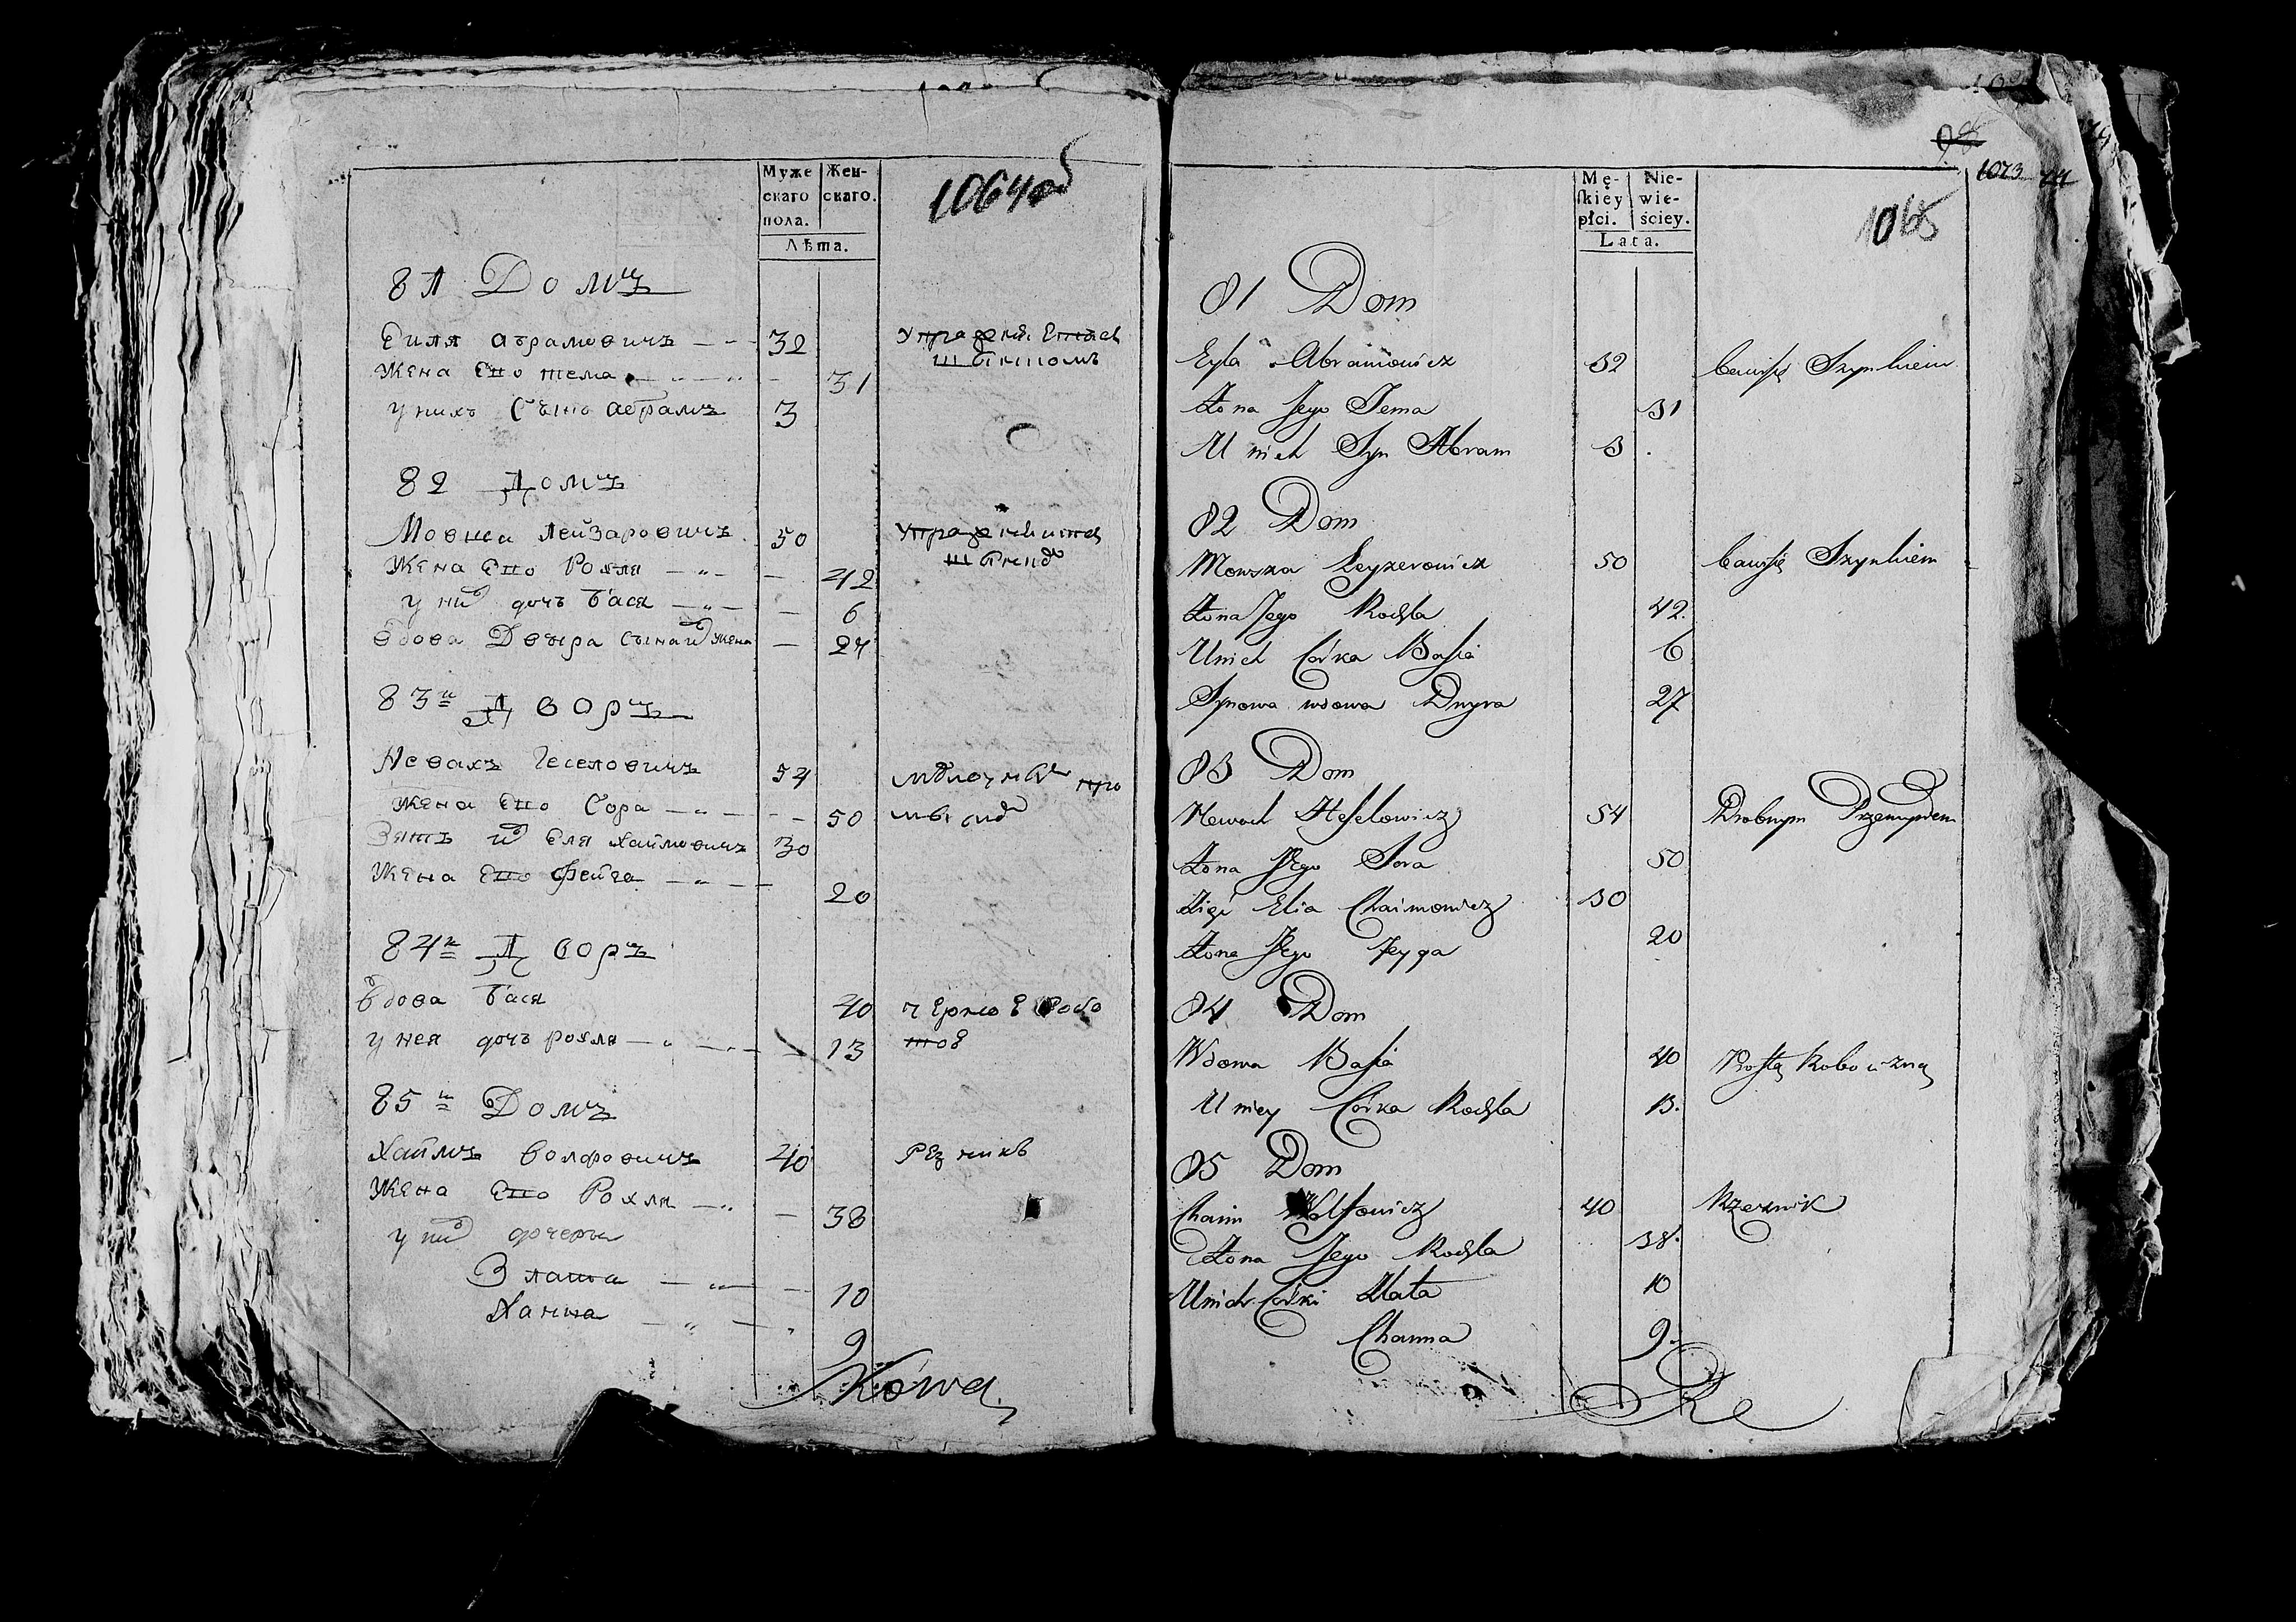 Муже
скаго
пола.
Жен-
скаго.
Лѣта.
1064 об
81 Домъ
Еиля Абрамовичъ 32
Жена Его тема 31
у нихъ Сынъ Абрамъ 3
82 Домъ
Мовша Лейзаровичъ 50
Жена Его Рохля 42
у них дочь Бася 6
вдова Двыра сына их жена 27
83й Дворъ
Невахъ Геселовичъ 54
Жена Его Сора 50
Зять их Еля Хаймовичъ 30
Жена Его Фейга 20
84й Дворъ
Вдова Бася 40
у нея дочь рохля 13
85й Домъ
Хаймъ Волфовичъ 40 Резникъ
Жена Его Рохля 38
у них дочери
Злата 10
Ханна 9
Mę-
skiey
płci.
Nie-
wie-
ściey.
Lata.
1073
1065
81 Dom
Eyla Abramowicz 32 bawiſię Szynkiem
Żona Jego Tema 31
U nich Syn Abram 3
82 Dom
Mowsza Leyzerowicz 50 bawiſię Szynkiem
Żona Jego Rochla 42
U nich Córka Basia 6
Synowa wdowa Dwyra 27
83 Dom
Newach Heſelowicz 54 Drobnym Przemysłem
Żona Jego Sora 50
Zięć Elia Chaimowicz 30
Żona Jego Feyga 20
84 Dom
Wdowa Basia 40 Proſtą Robocizną
U niey Córka Rochla 13.
85 Dom
Chaim Wolfowicz 40 Rzeznik
Żona Jego Rochla 38.
U nich Córki Zlata 10
Channa 9.